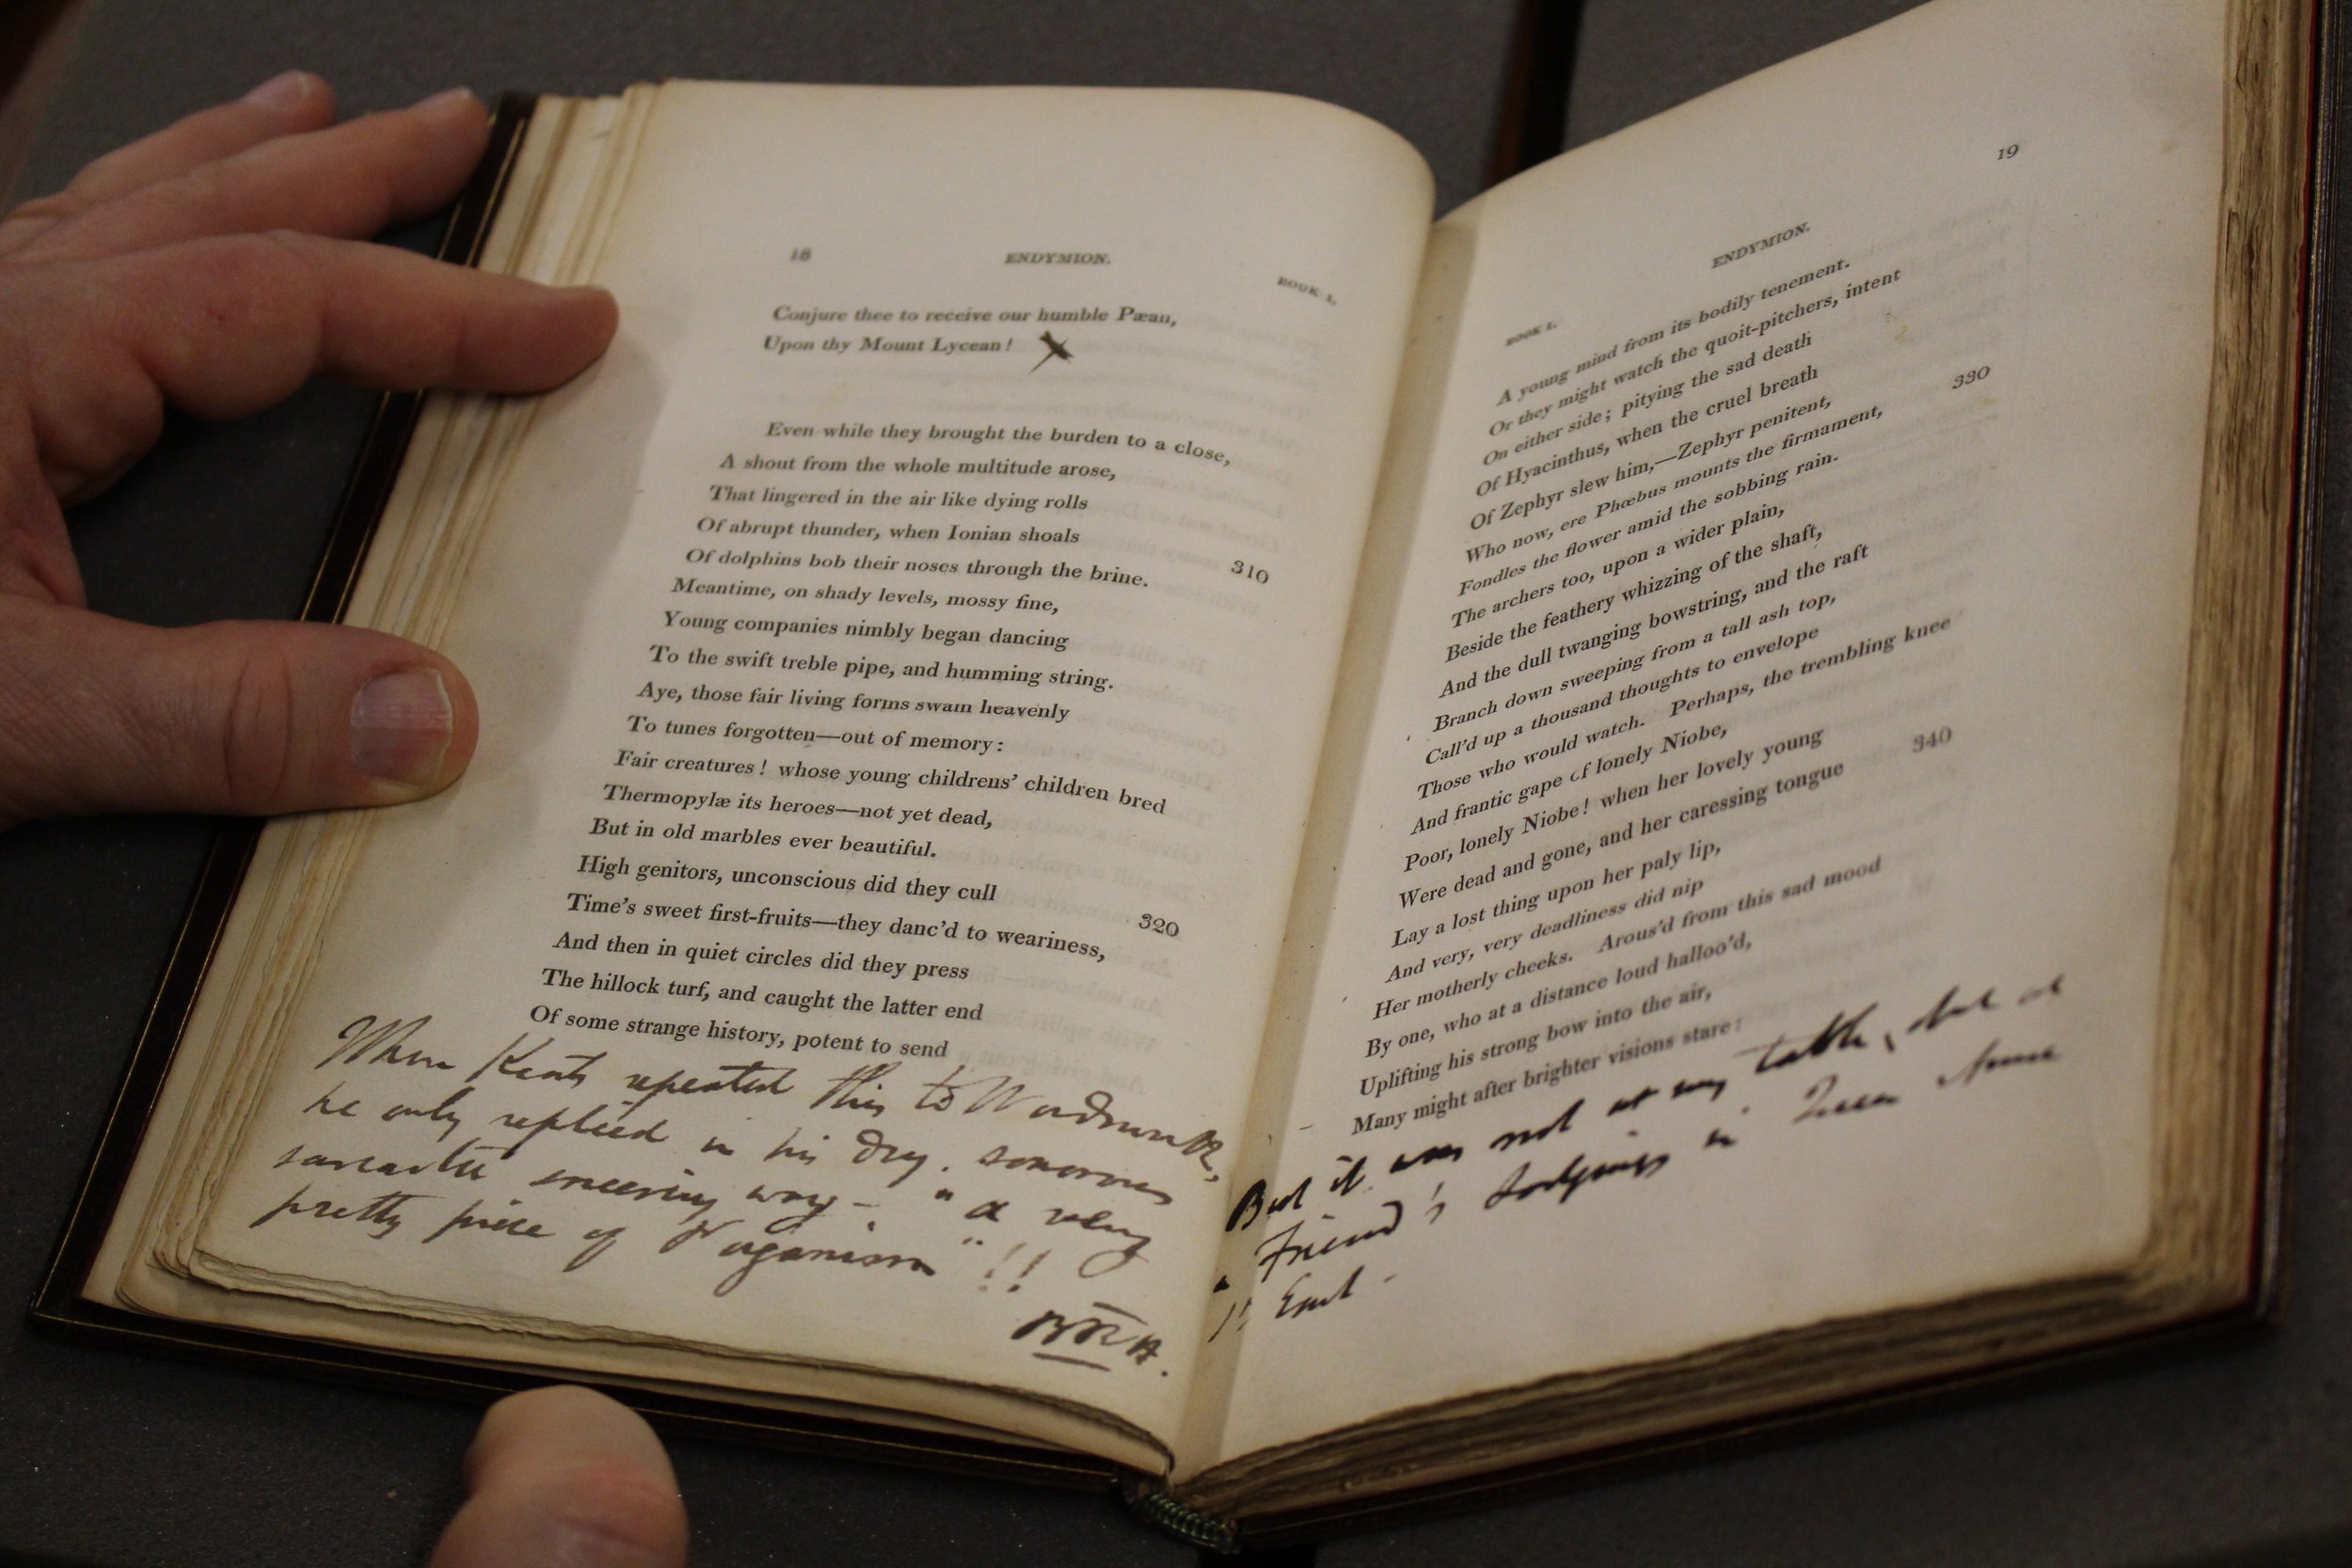 18
ENDYMION.
BOOK I.
Conjure thee to receive our humble Pæan,
Upon thy Mount Lycean!
Even while they brought the burden to a close,
A shout from the whole multitude arose,
That lingered in the air like dying rolls
Of abrupt thunder, when Ionian shoals
Of dolphins bob their noses through the brine.
310
Meantime, on shady levels, mossy fine,
Young companies nimbly began dancing
To the swift treble pipe, and humming string.
Aye, those fair living forms swam heavenly
To tunes forgotten—out of memory:
Fair creatures! whose young childrens' children bred
Thermopylæ its heroes—not yet dead,
But in old marbles ever beautiful.
High genitors, unconscious did they cull
Time's sweet first-fruits—they danc'd to weariness,
320
And then in quiet circles did they press
The hillock turf, and caught the latter end
Of some strange history, potent to send
When Keats repeated this to Wordsworth,
he only replied in his dry. sonorous
sarcastic sneering way – "a very
pretty piece of Paganism" !!
BRH.
19
ENDYMION.
BOOK I.
A young mind from its bodily tenement.
Or they might watch the quoit-pitchers, intent
On either side; pitying the sad death
Of Hyacinthus, when the cruel breath
Of Zephyr slew him,—Zephyr penitent,
330
Who now, ere Phœbus mounts the firmament,
Fondles the flower amid the sobbing rain.
The archers too, upon a wider plain,
Beside the feathery whizzing of the shaft,
And the dull twanging bowstring, and the raft
Branch down sweeping from a tall ash top,
Call'd up a thousand thoughts to envelope
Those who would watch. Perhaps, the trembling knee
And frantic gape of lonely Niobe,
Poor, lonely Niobe! when her lovely young
340
Were dead and gone, and her caressing tongue
Lay a lost thing upon her paly lip,
And very, very deadliness did nip
Her motherly cheeks. Arous'd from this sad mood
By one, who at a distance loud halloo'd,
Uplifting his strong bow into the air,
Many might after brighter visions stare:
But it was not at my table, but at
a Friend's Lodgings in Queen Anne
St East –